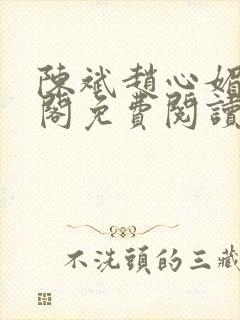 陳斌趙心媚
閣免費閱讀
不洗頭的三藏